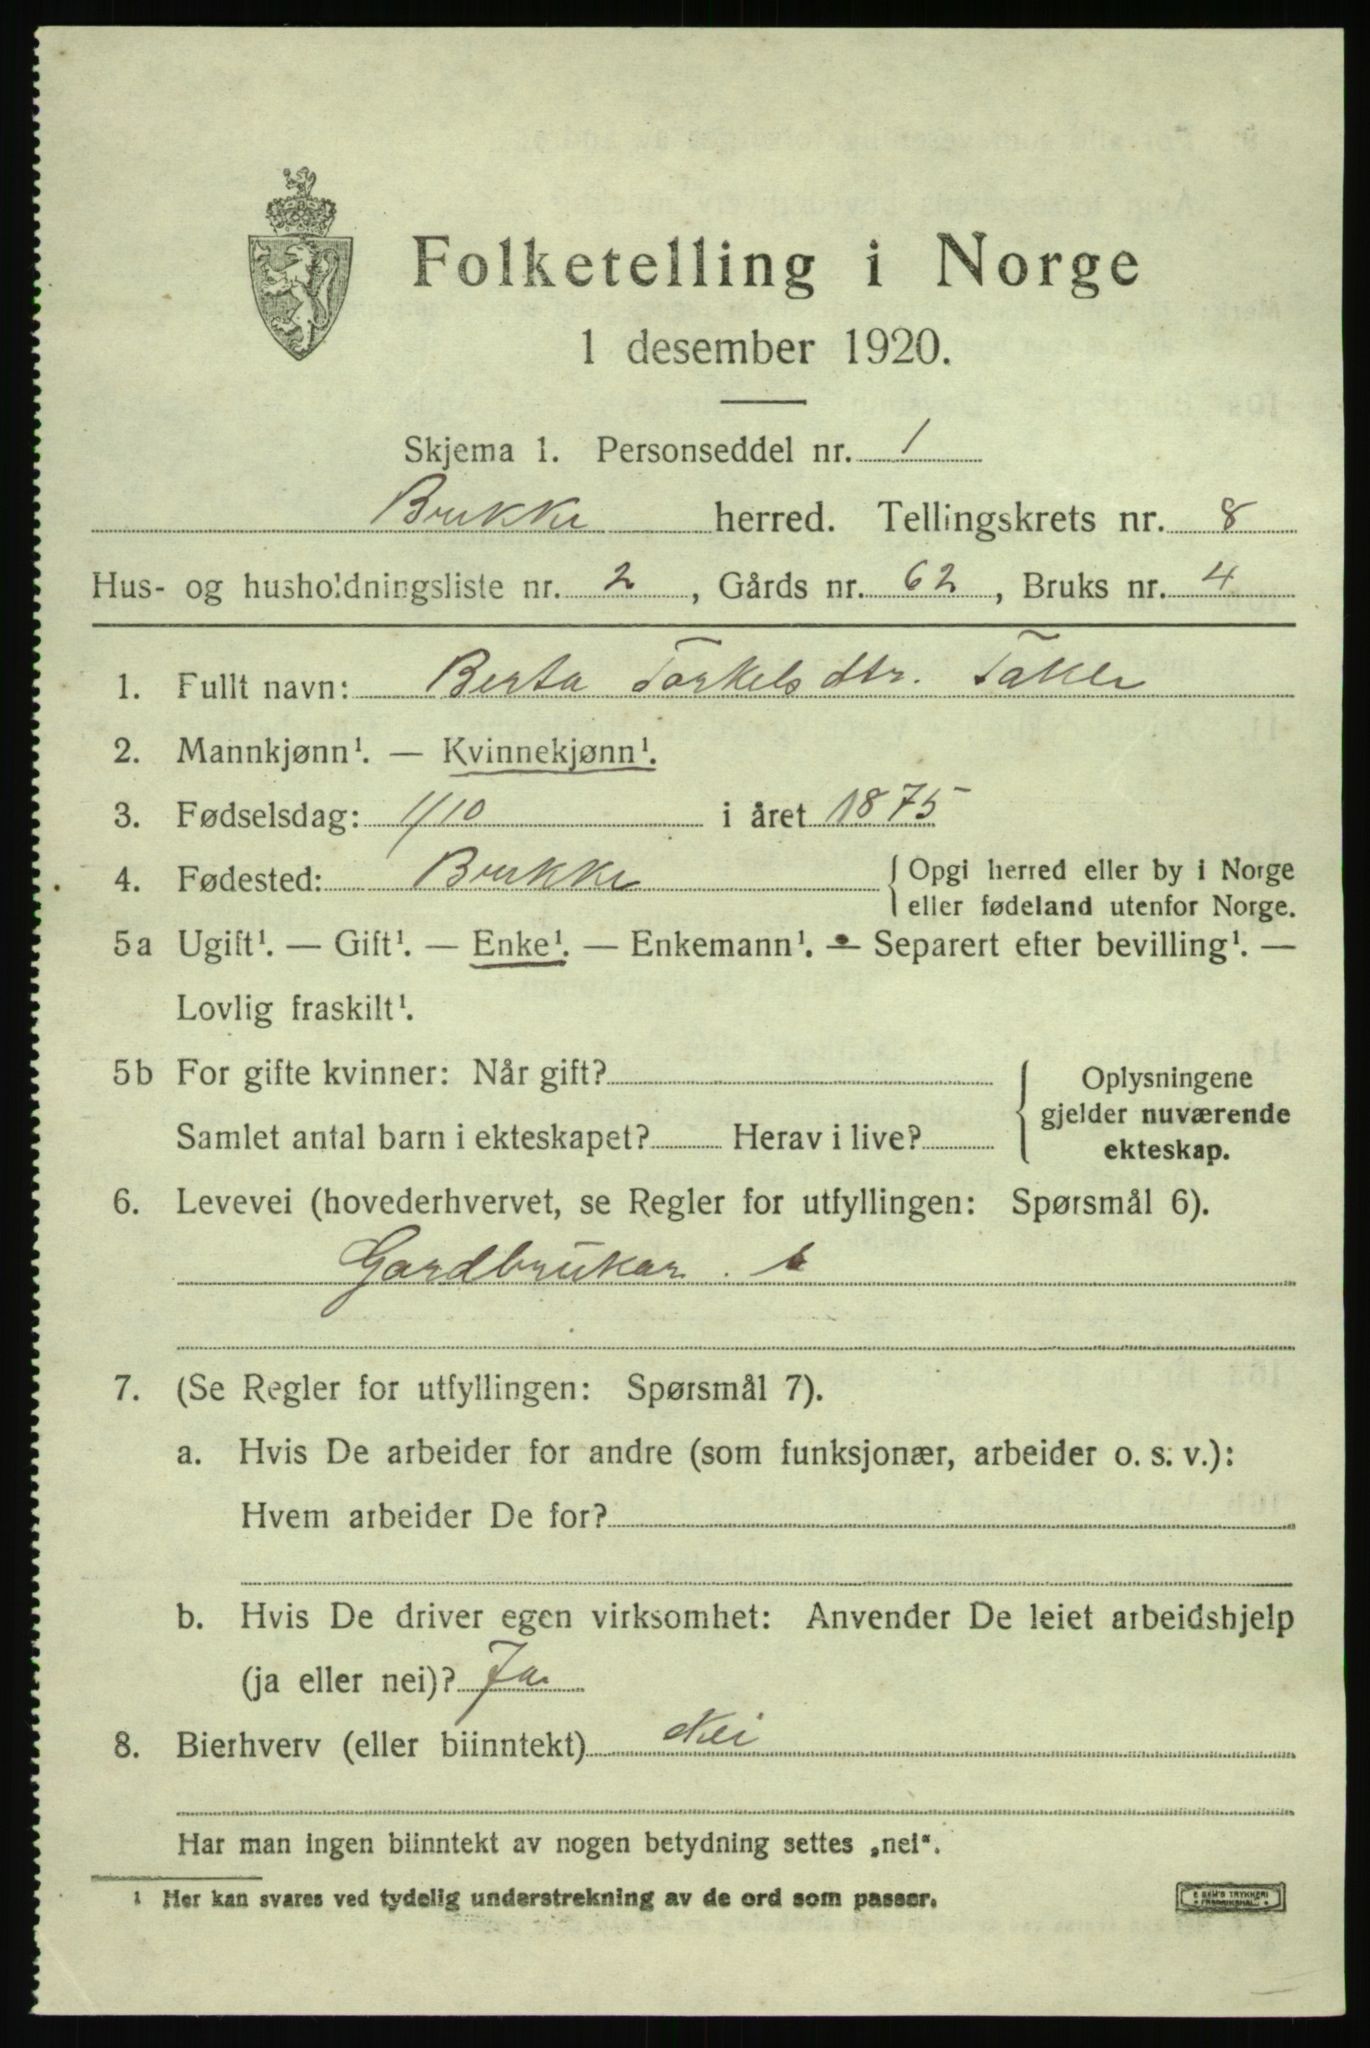 Folketelling i Norge
1 desember 1920.
Skjema 1. Personseddel nr. 1
Brekke herred. Tellingskrets nr. 8
Hus- og husholdningsliste nr. 2, Gårds nr. 62, Bruks nr. 4
1. Fullt navn: Berta Torkelsdtr. Takle
2. Mannkjønn¹. — Kvinnekjønn¹.
3. Fødselsdag: 1/10 i året 1875
4. Fødested: Brekke { Opgi herred eller by i Norge
eller fødeland utenfor Norge.
5a Ugift¹. — Gift¹. — Enke¹. — Enkemann¹. — Separert efter bevilling¹. —
Lovlig fraskilt¹.
5b For gifte kvinner: Når gift?
Samlet antal barn i ekteskapet? Herav i live?
Oplysningene
gjelder nuværende
ekteskap.
6. Levevei (hovederhvervet, se Regler for utfyllingen: Spørsmål 6).
Gardbrukar.
7. (Se Regler for utfyllingen: Spørsmål 7).
a. Hvis De arbeider for andre (som funksjonær, arbeider o. s. v.):
Hvem arbeider De for?
b. Hvis De driver egen virksomhet: Anvender De leiet arbeidshjelp
(ja eller nei)? Ja
8. Bierhverv (eller biinntekt) Nei
Har man ingen biinntekt av nogen betydning settes „nei“.
¹ Her kan svares ved tydelig understrekning av de ord som passer.